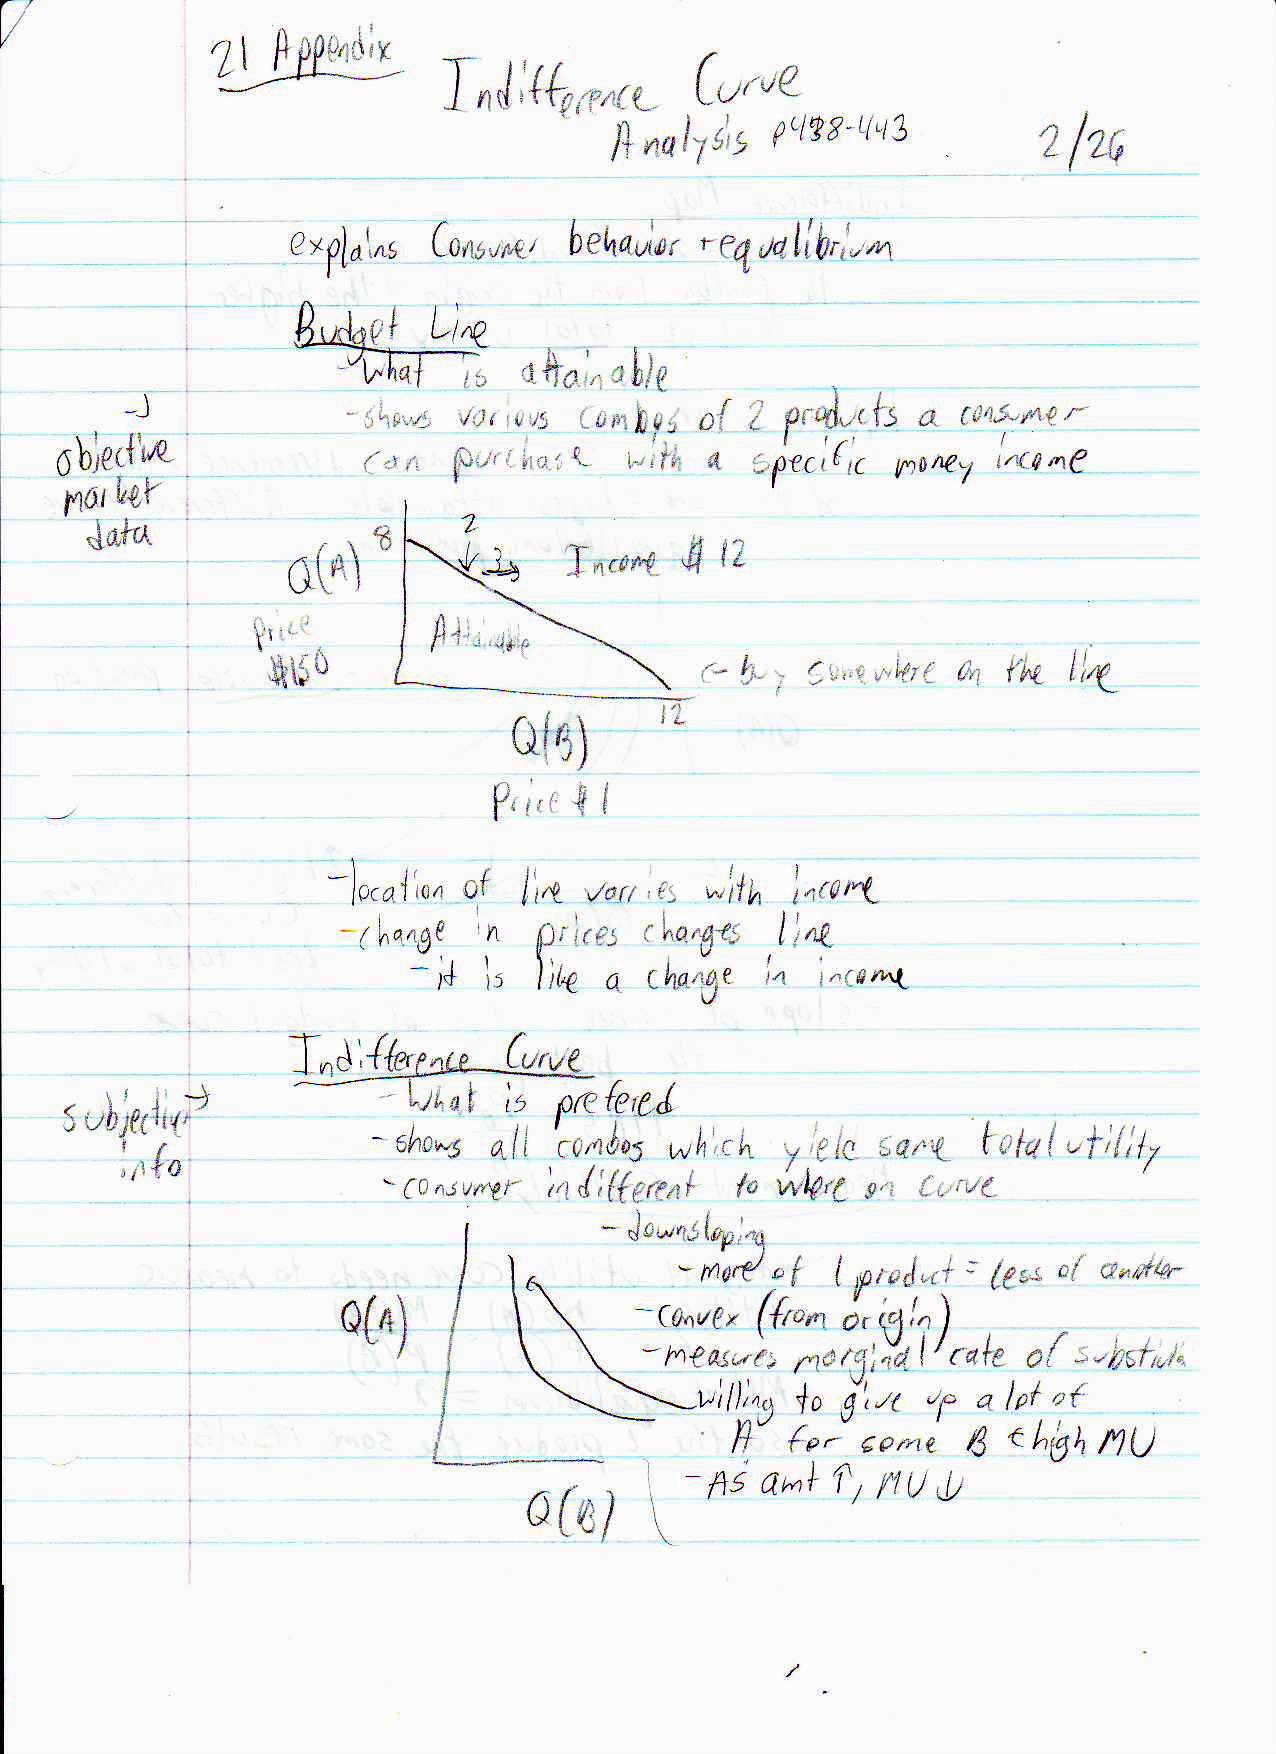 21 Appendix
Indifference Curve
Analysis p438-443
2/26
explains Consumer behavior + equalibrium
Budget Line
-what is attainable
-shows various combos of 2 products a consumer
can purchase with a specific money income
objective
market
data
8
2
3
Q(A)
Income $12
Price
$1.50
Attainable
← buy somewhere on the line
12
Q(B)
Price $1
-location of line varries with income
-change in prices changes line
-it is like a change in income
Indifference Curve
subjective
info
-what is prefered
-shows all combos which yield same total utility
-consumer indifferent to where on curve
-downsloping
-more of 1 product = less of another
Q(A)
-convex (from origin)
-measures marginal rate of
willing to give up a lot of
A for some B ← high MU
-As amt ↑, MU ↓
Q(B)